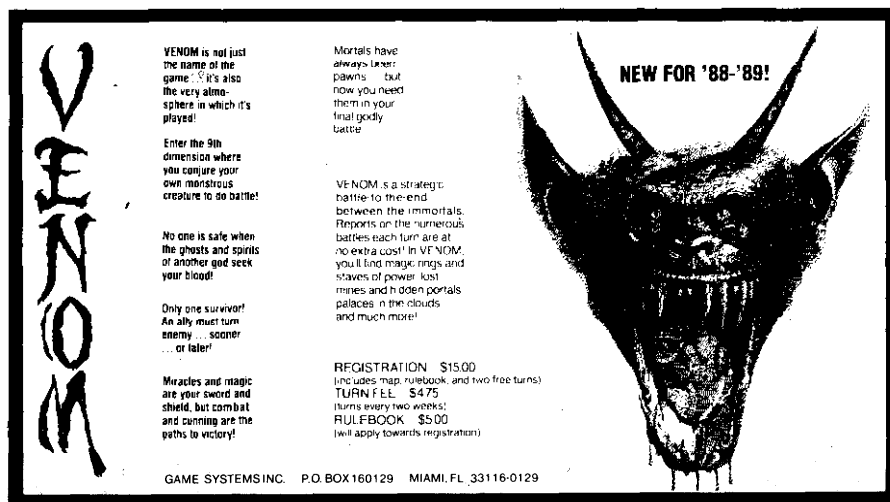 VENOM
VENOM is not just
the name of the
game it's also
the very atmo-
sphere in which it's
played!
Enter the 9th
dimension where
you conjure your
own monstrous
creature to do battle!
No one is safe when
the ghosts and spirits
of another god seek
your blood!
Only one survivor!
An ally must turn
enemy ... sooner
... or later!
Miracles and magic
are your sword and
shield, but combat
and cunning are the
paths to victory!
Mortals have
always been
pawns but
now you need
them in your
final godly
battle
VENOM is a strategic
battle to the end
between the immortals.
Reports on the numerous
battles each turn are at
no extra cost! In VENOM,
you'll find magic rings and
staves of power, lost
mines and hidden portals
palaces in the clouds
and much more!
REGISTRATION $15.00
(includes map, rulebook, and two free turns)
TURN FEE $4.75
(turns every two weeks)
RULEBOOK $5.00
(will apply towards registration)
NEW FOR '88-'89!
GAME SYSTEMS INC. P.O. BOX 160129 MIAMI, FL 33116-0129